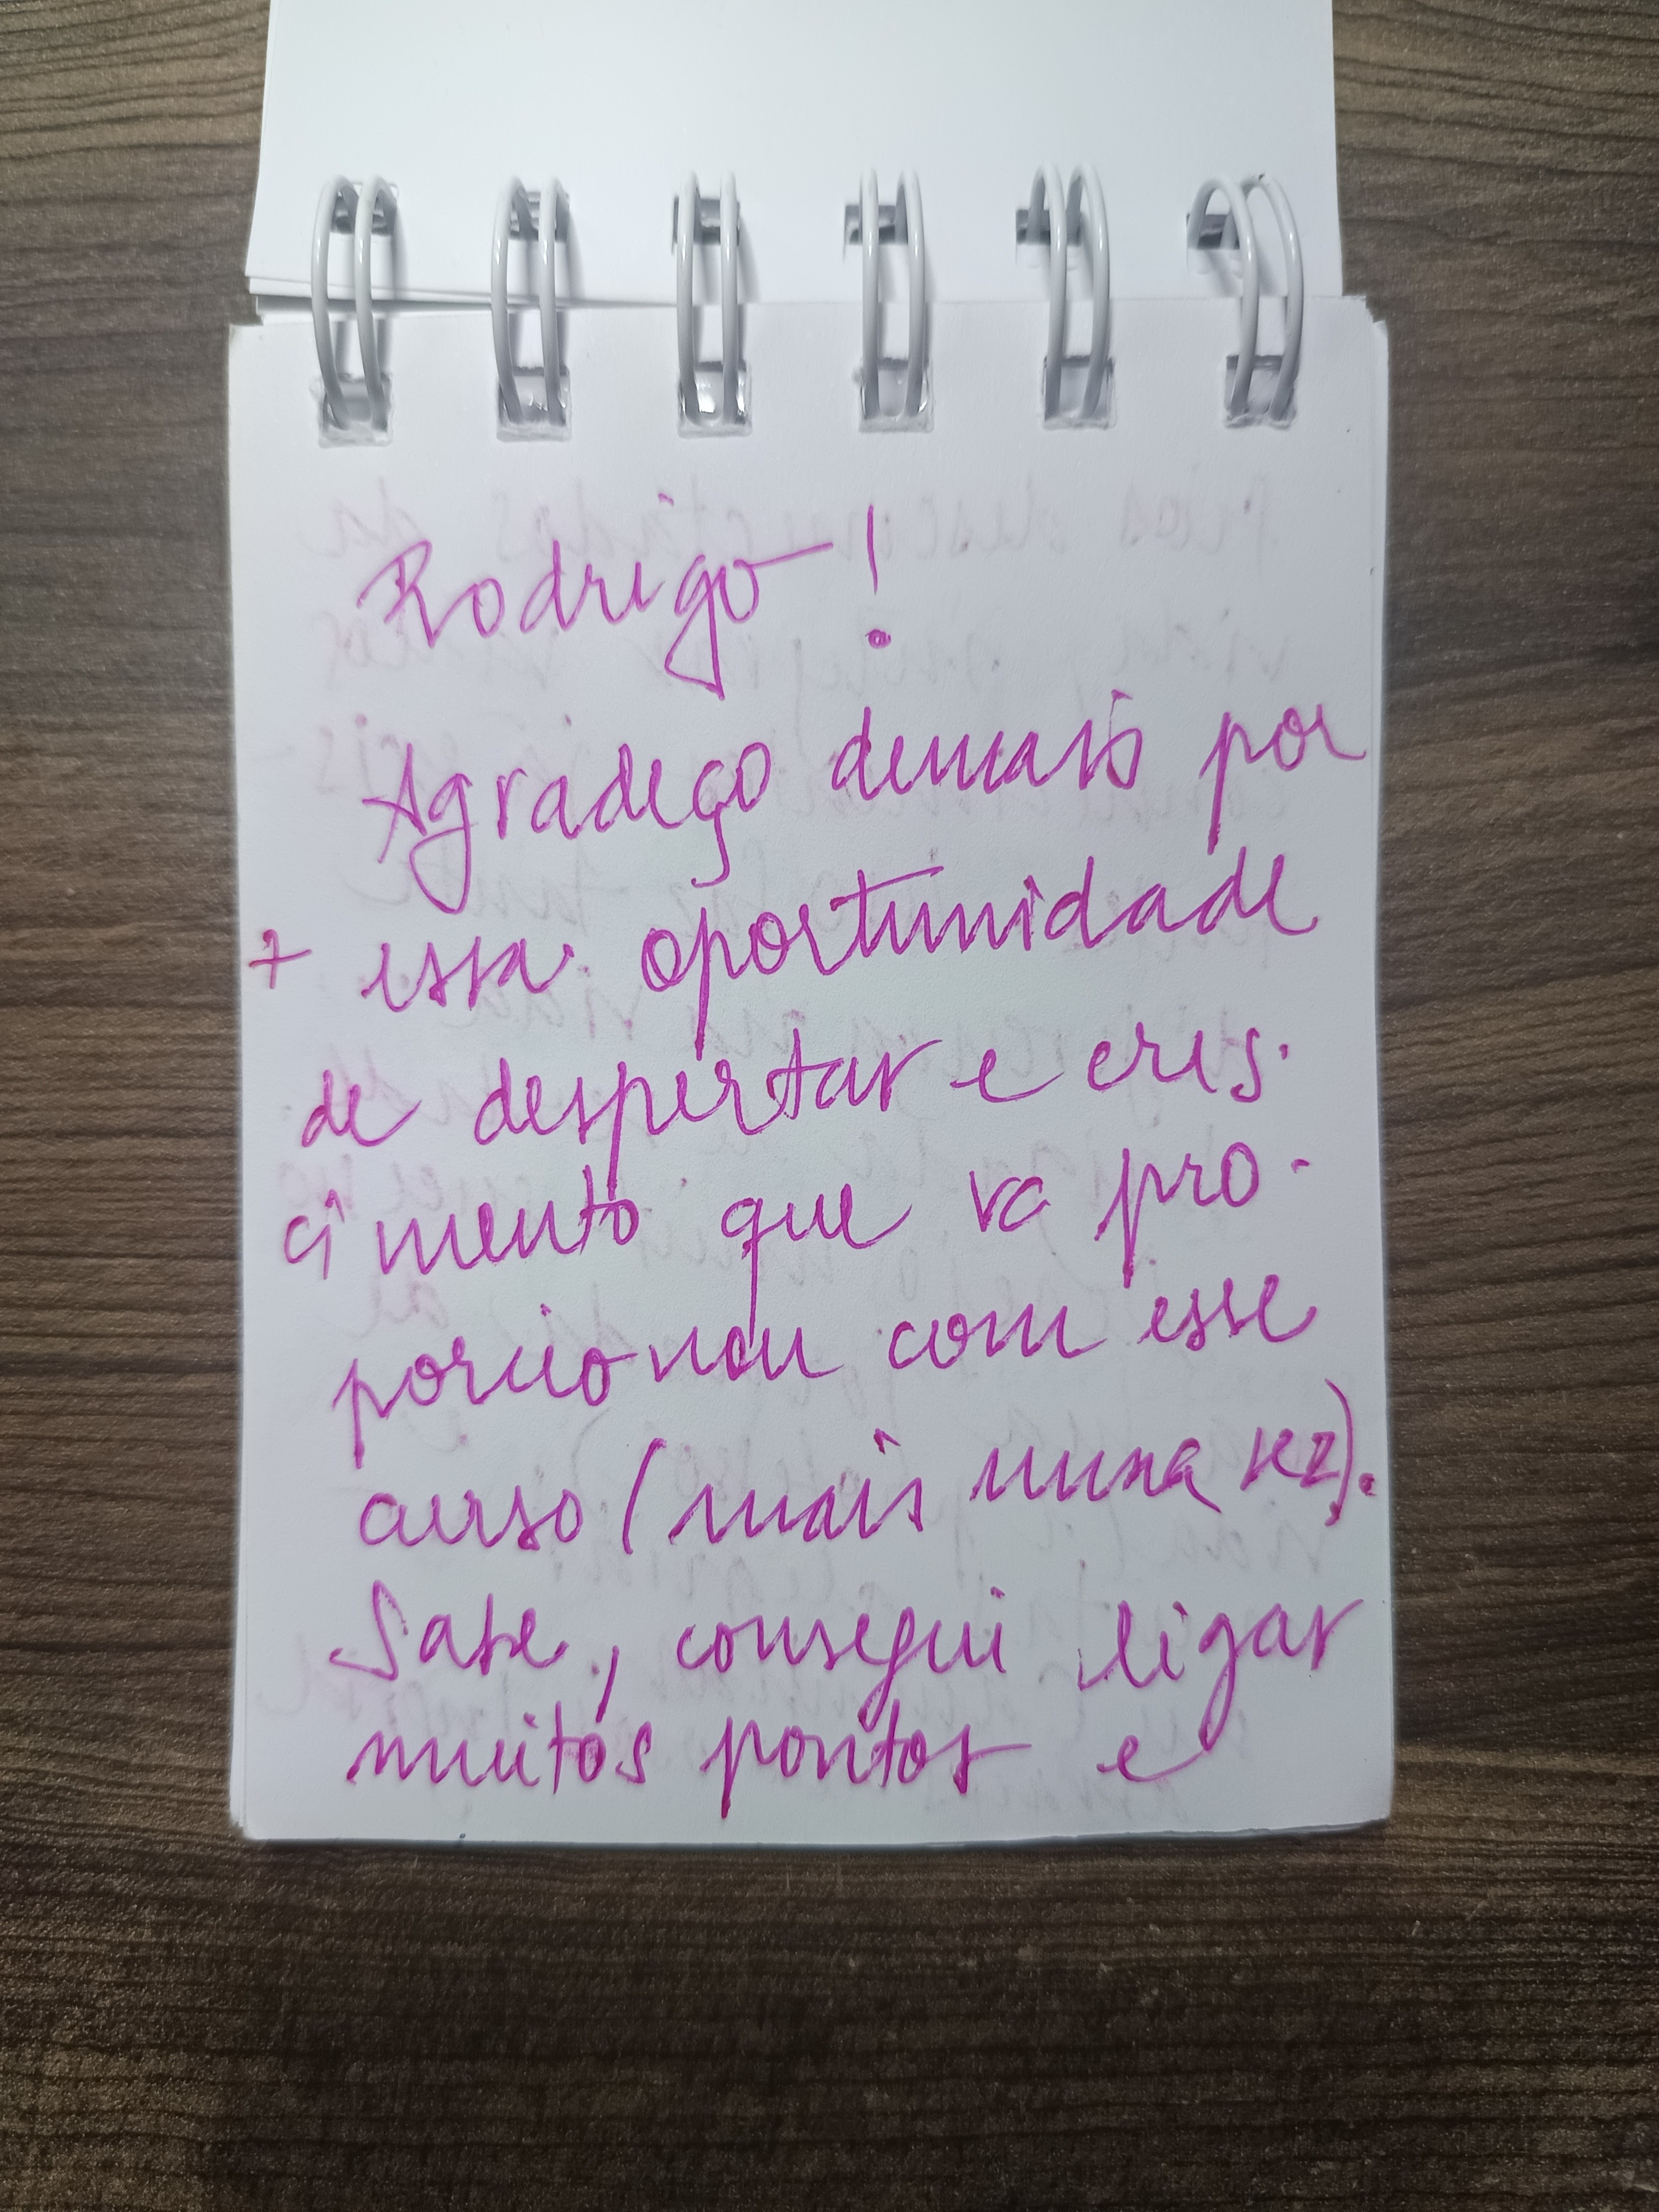 Rodrigo!
Agradeço demais por
+ essa oportunidade
de despertar e cres-
cimento que vc pro-
porcionou com esse
curso (mais numa vez).
Sabe, consegui ligar
muitos pontos e